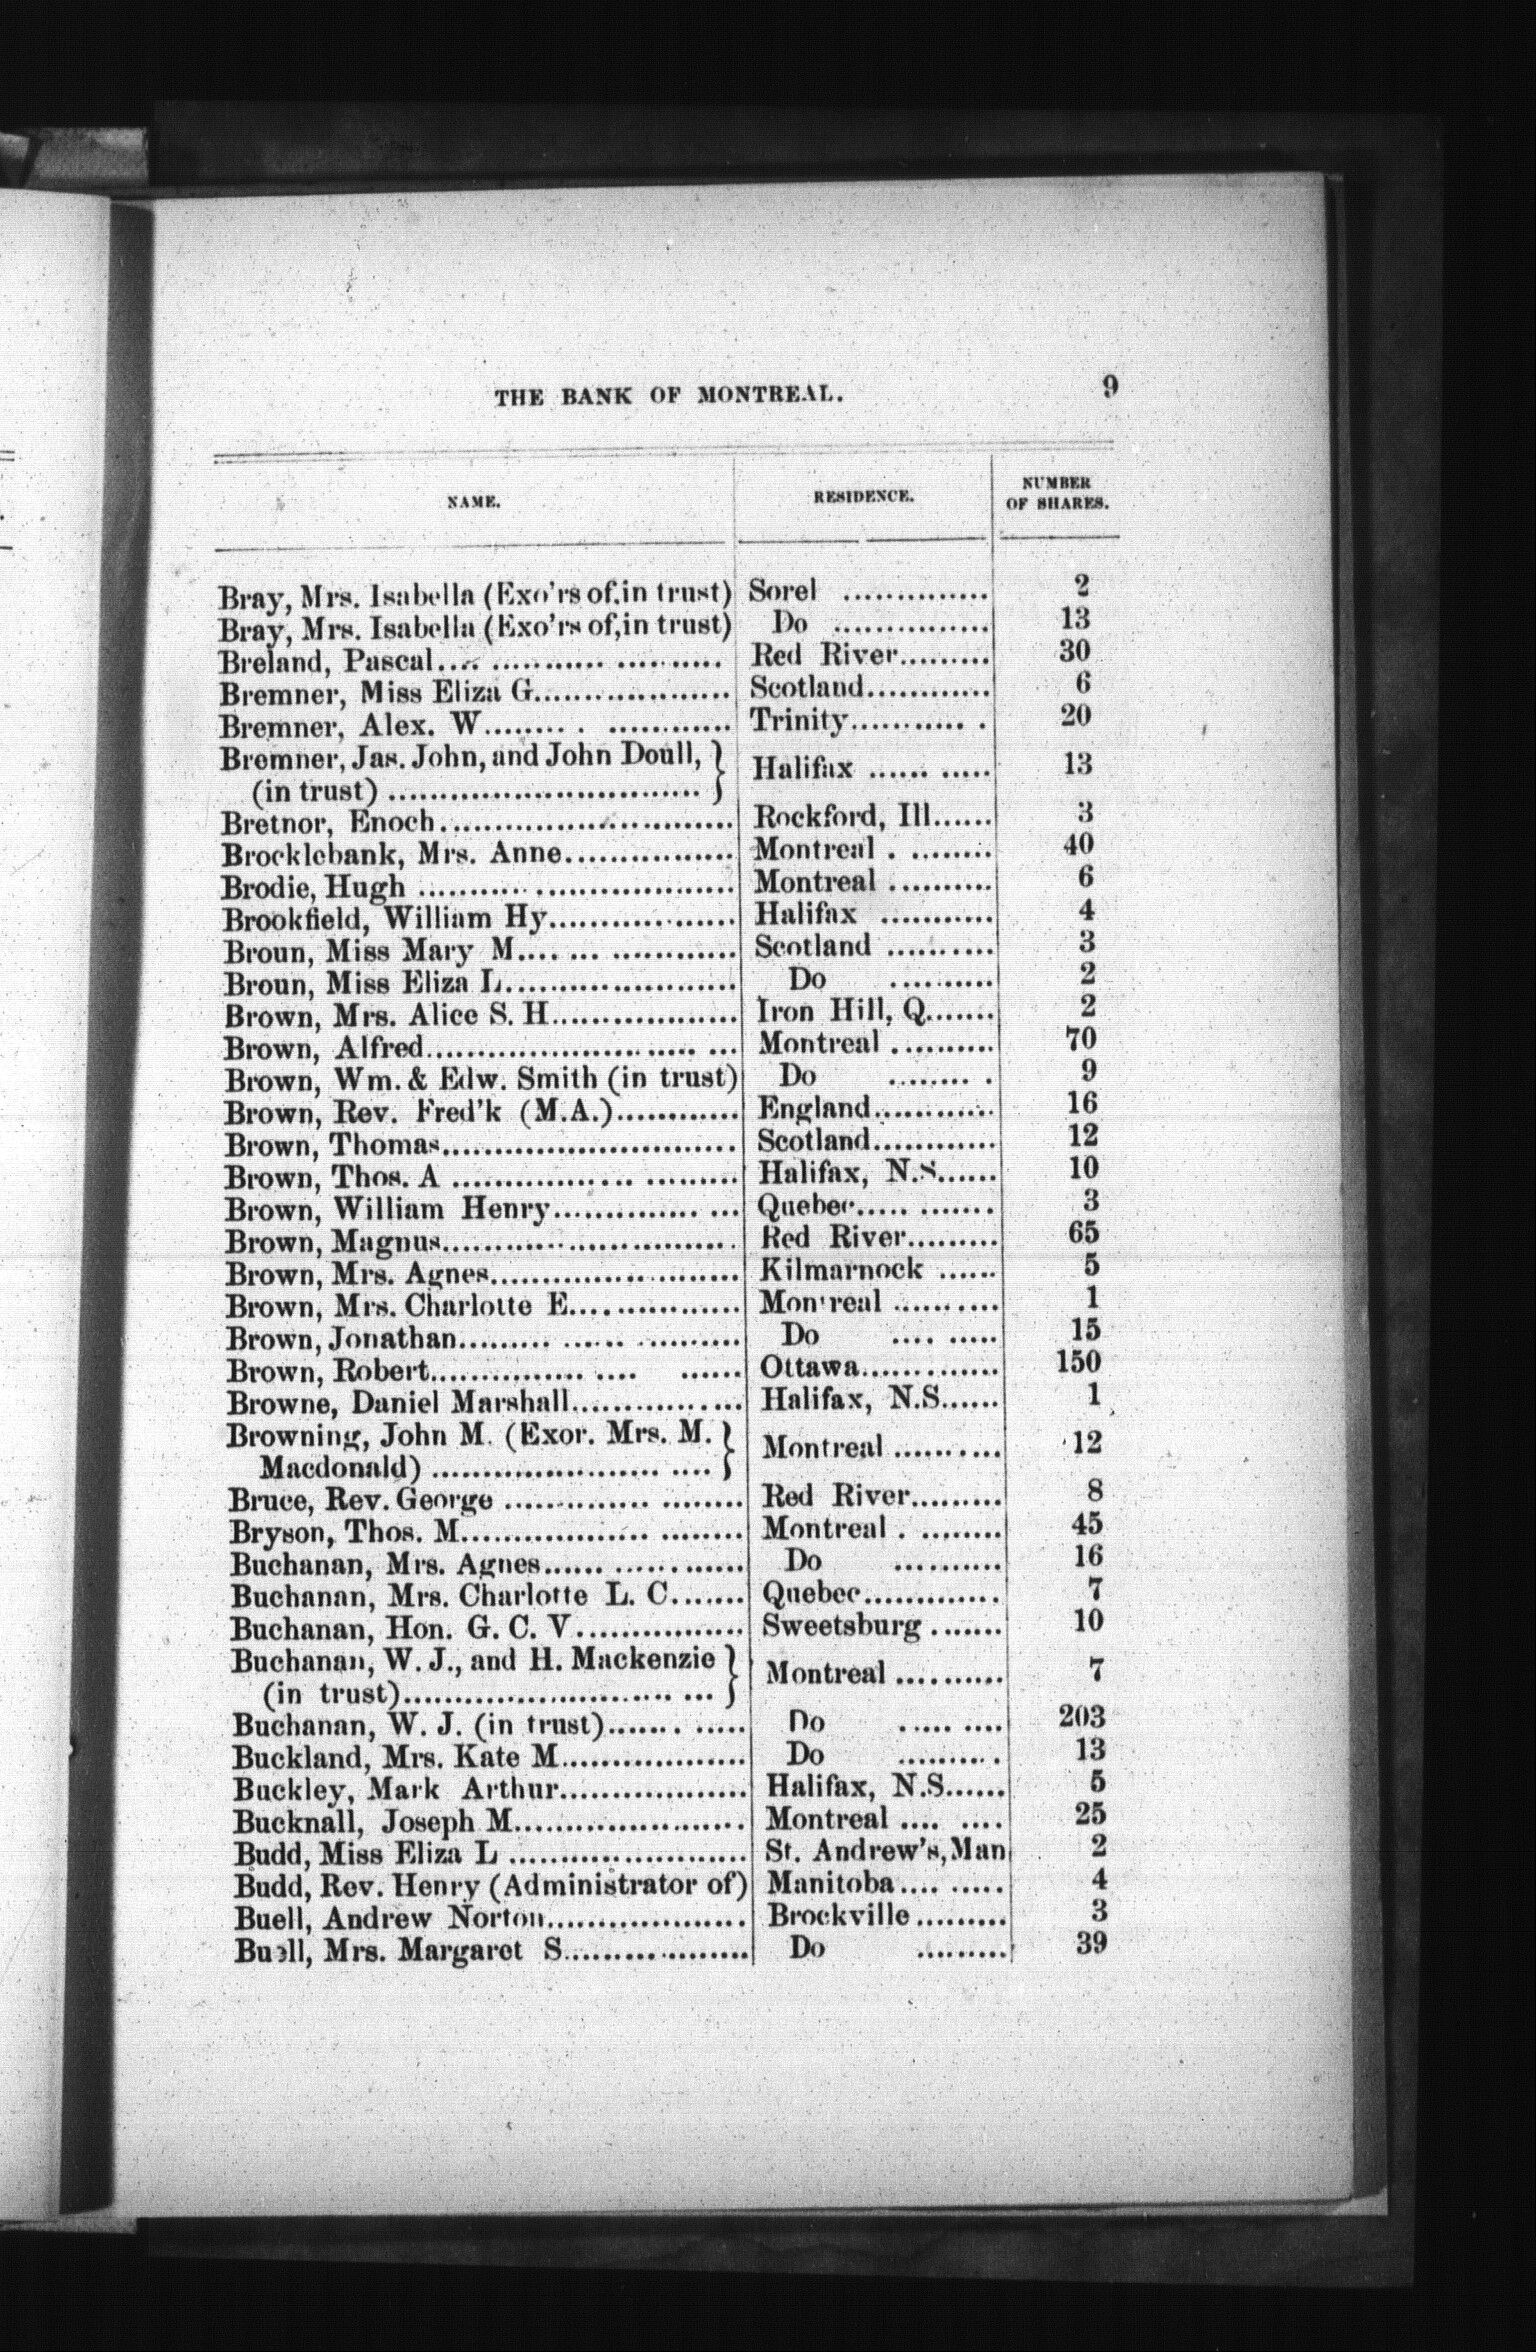 THE BANK OF MONTREAL. 9
NAME. RESIDENCE. NUMBER
OF SHARES.
Bray, Mrs. Isabella (Exo'rs of,in trust) Sorel .............. 2
Bray, Mrs. Isabella (Exo'rs of,in trust) Do ............... 13
Breland, Pascal.... ........... .......... Red River......... 30
Bremner, Miss Eliza G................... Scotland............ 6
Bremner, Alex. W........ . ............ Trinity........... . 20
Bremner, Jas. John, and John Doull, } Halifax ...... ..... 13
(in trust) ..............................
Bretnor, Enoch............................ Rockford, Ill...... 3
Brocklebank, Mrs. Anne................ Montreal . ........ 40
Brodie, Hugh .......... ................... Montreal .......... 6
Brookfield, William Hy.................. Halifax ........... 4
Broun, Miss Mary M.... ... ............ Scotland .......... 3
Broun, Miss Eliza L...................... Do .......... 2
Brown, Mrs. Alice S. H.................. Iron Hill, Q....... 2
Brown, Alfred..................... ..... ... Montreal .......... 70
Brown, Wm. & Edw. Smith (in trust) Do ........ . 9
Brown, Rev. Fred'k (M.A.)............ England............ 16
Brown, Thomas............................ Scotland............ 12
Brown, Thos. A ................. ......... Halifax, N.S...... 10
Brown, William Henry.............. ... Quebec..... ....... 3
Brown, Magnus............................ Red River......... 65
Brown, Mrs. Agnes........................ Kilmarnock ...... 5
Brown, Mrs. Charlotte E................. Montreal .......... 1
Brown, Jonathan......... ...... .......... Do .... ..... 15
Brown, Robert............... .... ...... Ottawa............. 150
Browne, Daniel Marshall................ Halifax, N.S...... 1
Browning, John M. (Exor. Mrs. M. } Montreal .......... 12
Macdonald) ...................... ....
Bruce, Rev. George .............. ........ Red River......... 8
Bryson, Thos. M.................. ........ Montreal . ........ 45
Buchanan, Mrs. Agnes...... ...... ...... Do .......... 16
Buchanan, Mrs. Charlotte L. C....... Quebec............. 7
Buchanan, Hon. G. C. V................ Sweetsburg ....... 10
Buchanan, W. J., and H. Mackenzie } Montreal .......... 7
(in trust).......................... ...
Buchanan, W. J. (in trust)....... ..... Do ..... .... 203
Buckland, Mrs. Kate M.................. Do ......... . 13
Buckley, Mark Arthur.................. Halifax, N.S...... 5
Bucknall, Joseph M...................... Montreal .... .... 25
Budd, Miss Eliza L ....................... St. Andrew's, Man 2
Budd, Rev. Henry (Administrator of) Manitoba.... ..... 4
Buell, Andrew Norton................... Brockville......... 3
Buell, Mrs. Margaret S.................. Do ......... 39